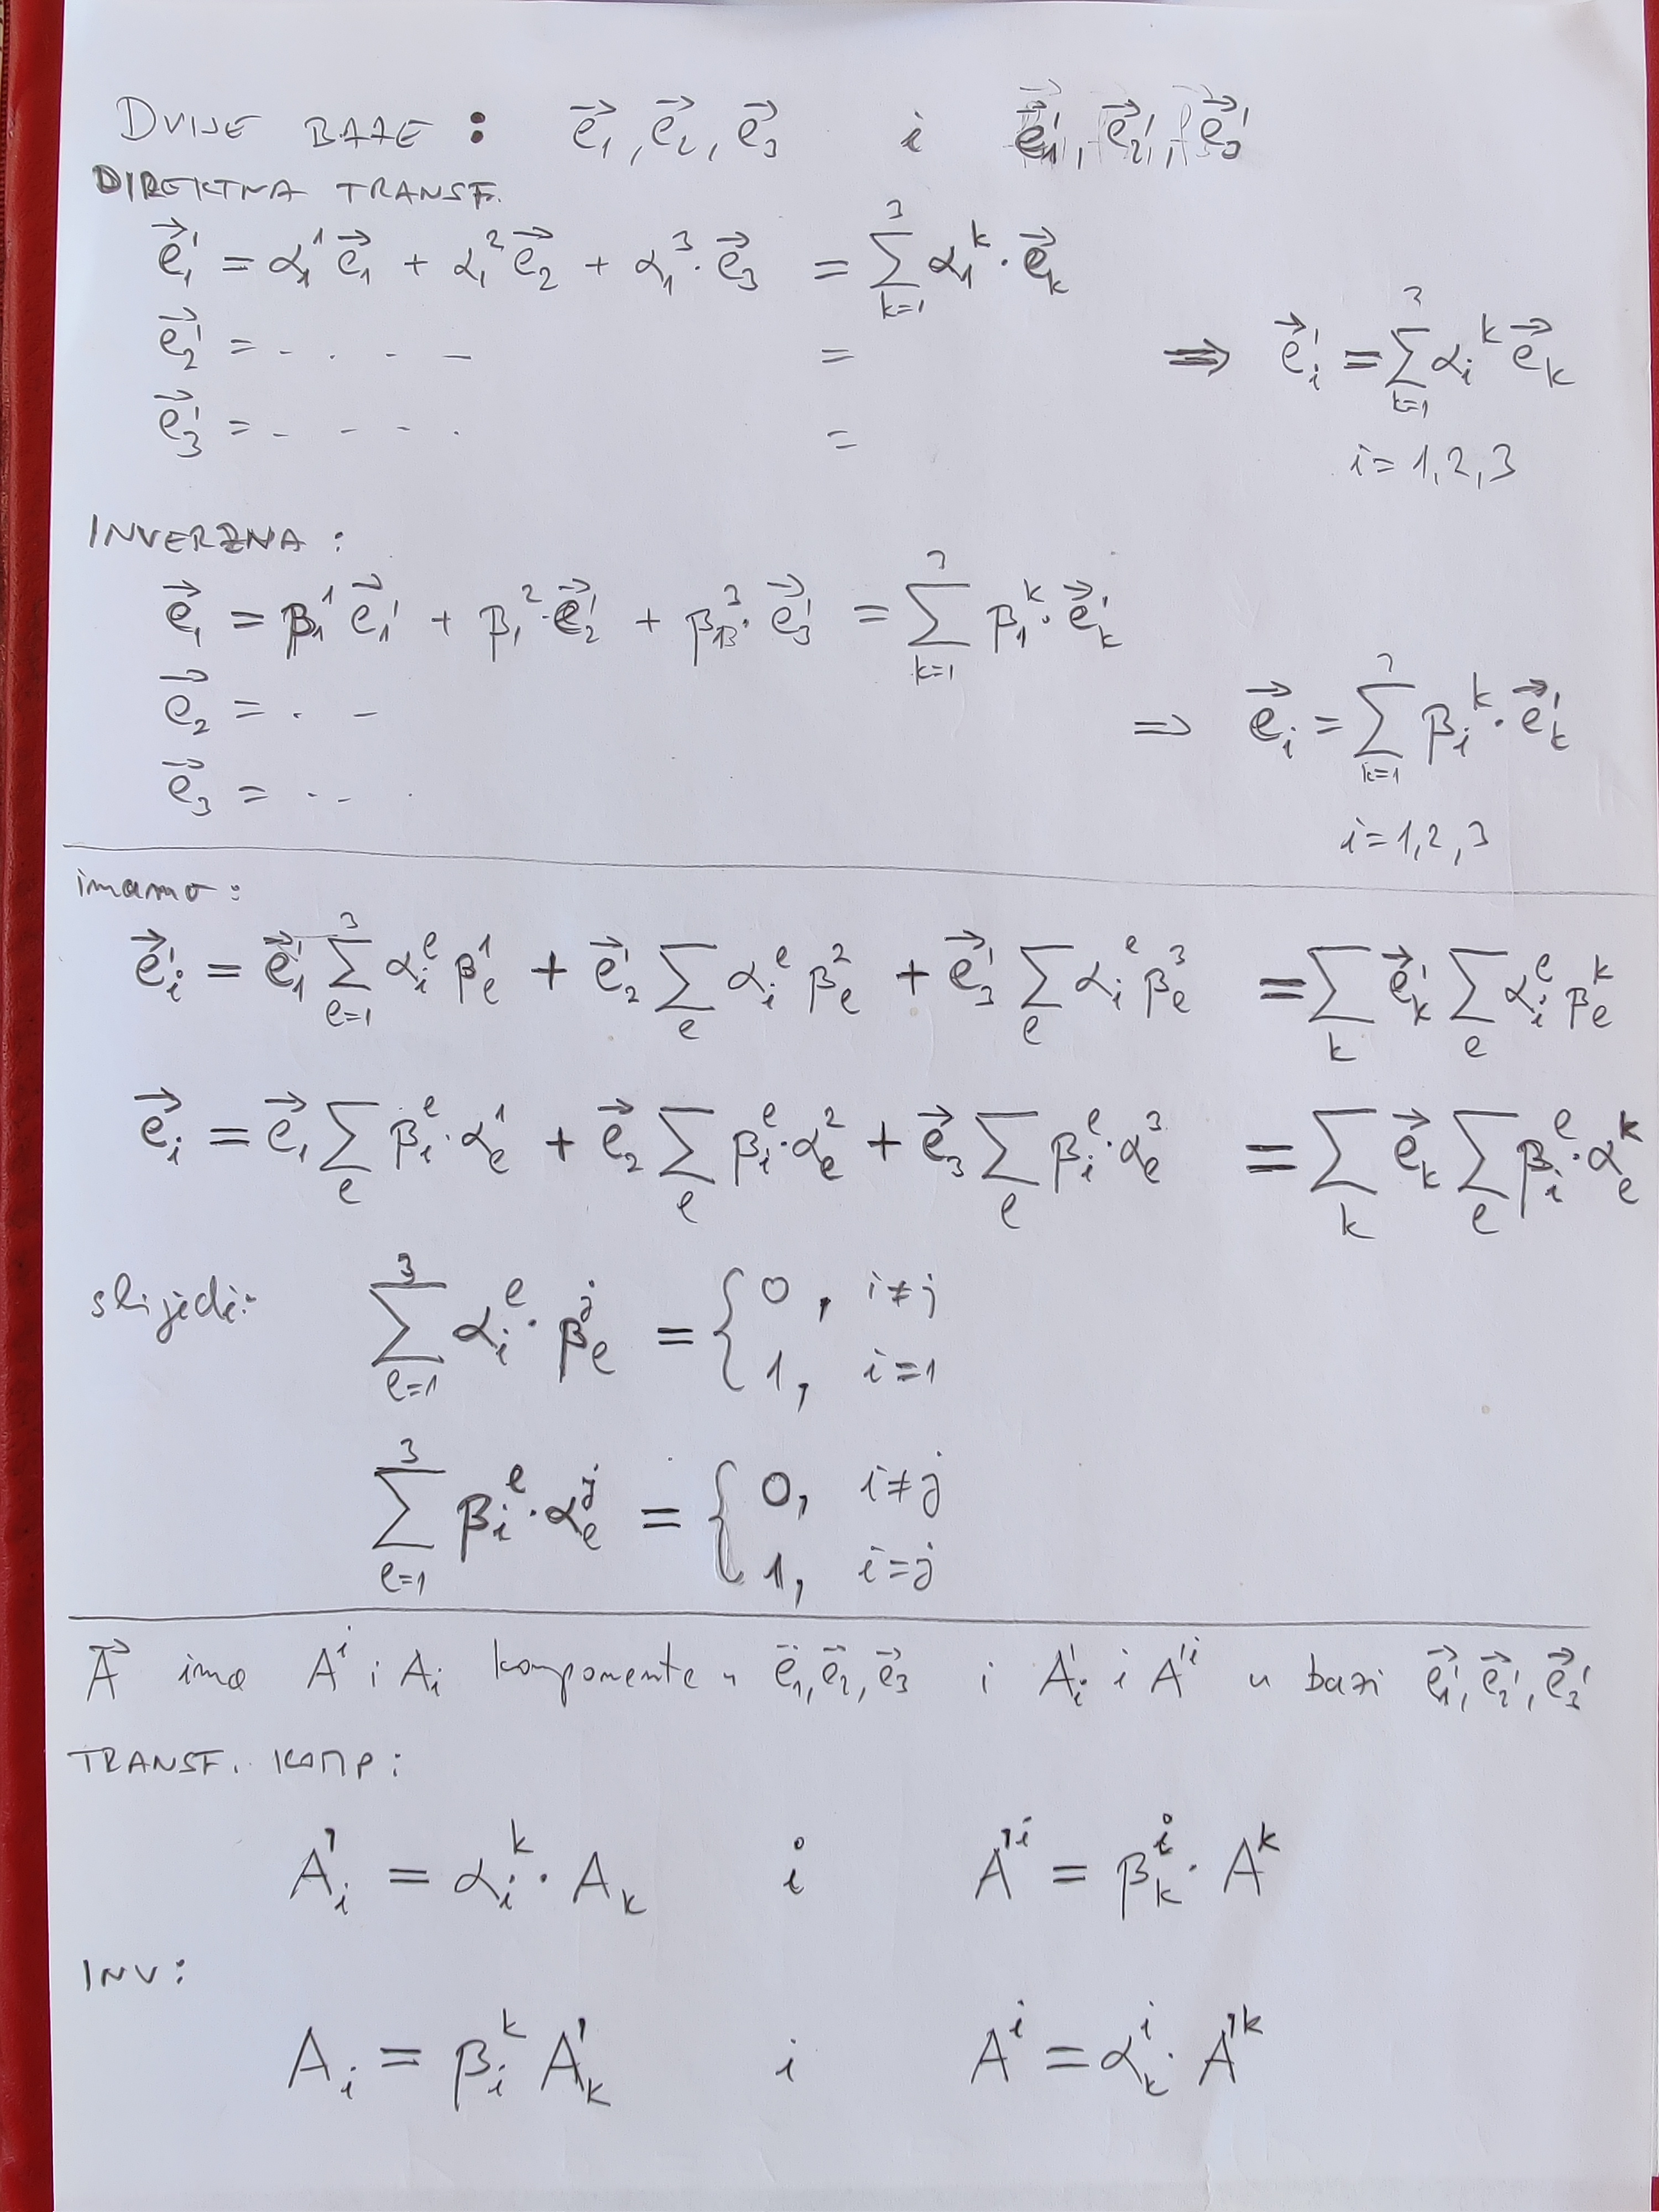 DVIJE BAZE : e⃗₁, e⃗₂, e⃗₃ i e⃗₁', e⃗₂', e⃗₃'
DIREKTNA TRANSF.
e⃗₁' = α₁¹ e⃗₁ + α₁² e⃗₂ + α₁³ · e⃗₃ = ∑_{k=1}^{3} α₁^k · e⃗_k
e⃗₂' = - . . - - =
e⃗₃' = - - - - . =
⇒ e⃗_i' = ∑_{k=1}^{3} α_i^k e⃗_k
i = 1, 2, 3
INVERZNA :
e⃗₁ = β₁¹ e⃗₁' + β₁² · e⃗₂' + β₁³ · e⃗₃' = ∑_{k=1}^{3} β₁^k · e⃗_k'
e⃗₂ = . -
e⃗₃ = . - - .
⇒ e⃗_i = ∑_{k=1}^{3} β_i^k · e⃗_k'
i = 1, 2, 3
imamo :
e⃗_i' = e⃗₁' ∑_{l=1}^{3} α_i^l β_l^1 + e⃗₂' ∑_l α_i^l β_l^2 + e⃗₃' ∑_l α_i^l β_l^3 = ∑_k e⃗_k' ∑_l α_i^l β_l^k
e⃗_i = e⃗₁ ∑_l β_i^l · α_l^1 + e⃗₂ ∑_l β_i^l · α_l^2 + e⃗₃ ∑_l β_i^l · α_l^3 = ∑_k e⃗_k ∑_l β_i^l · α_l^k
slijedi: ∑_{l=1}^{3} α_i^l · β_l^j = { 0, i≠j
1, i=1
∑_{l=1}^{3} β_i^l · α_l^j = { 0, i≠j
1, i=j
A⃗ ima A^i i A_i komponente u e⃗₁, e⃗₂, e⃗₃ i A'_i i A'^i u bazi e⃗₁', e⃗₂', e⃗₃'
TRANSF. KOMP :
A'_i = α_i^k · A_k i A'^i = β_k^i · A^k
INV :
A_i = β_i^k A'_k i A^i = α_k^i · A'^k